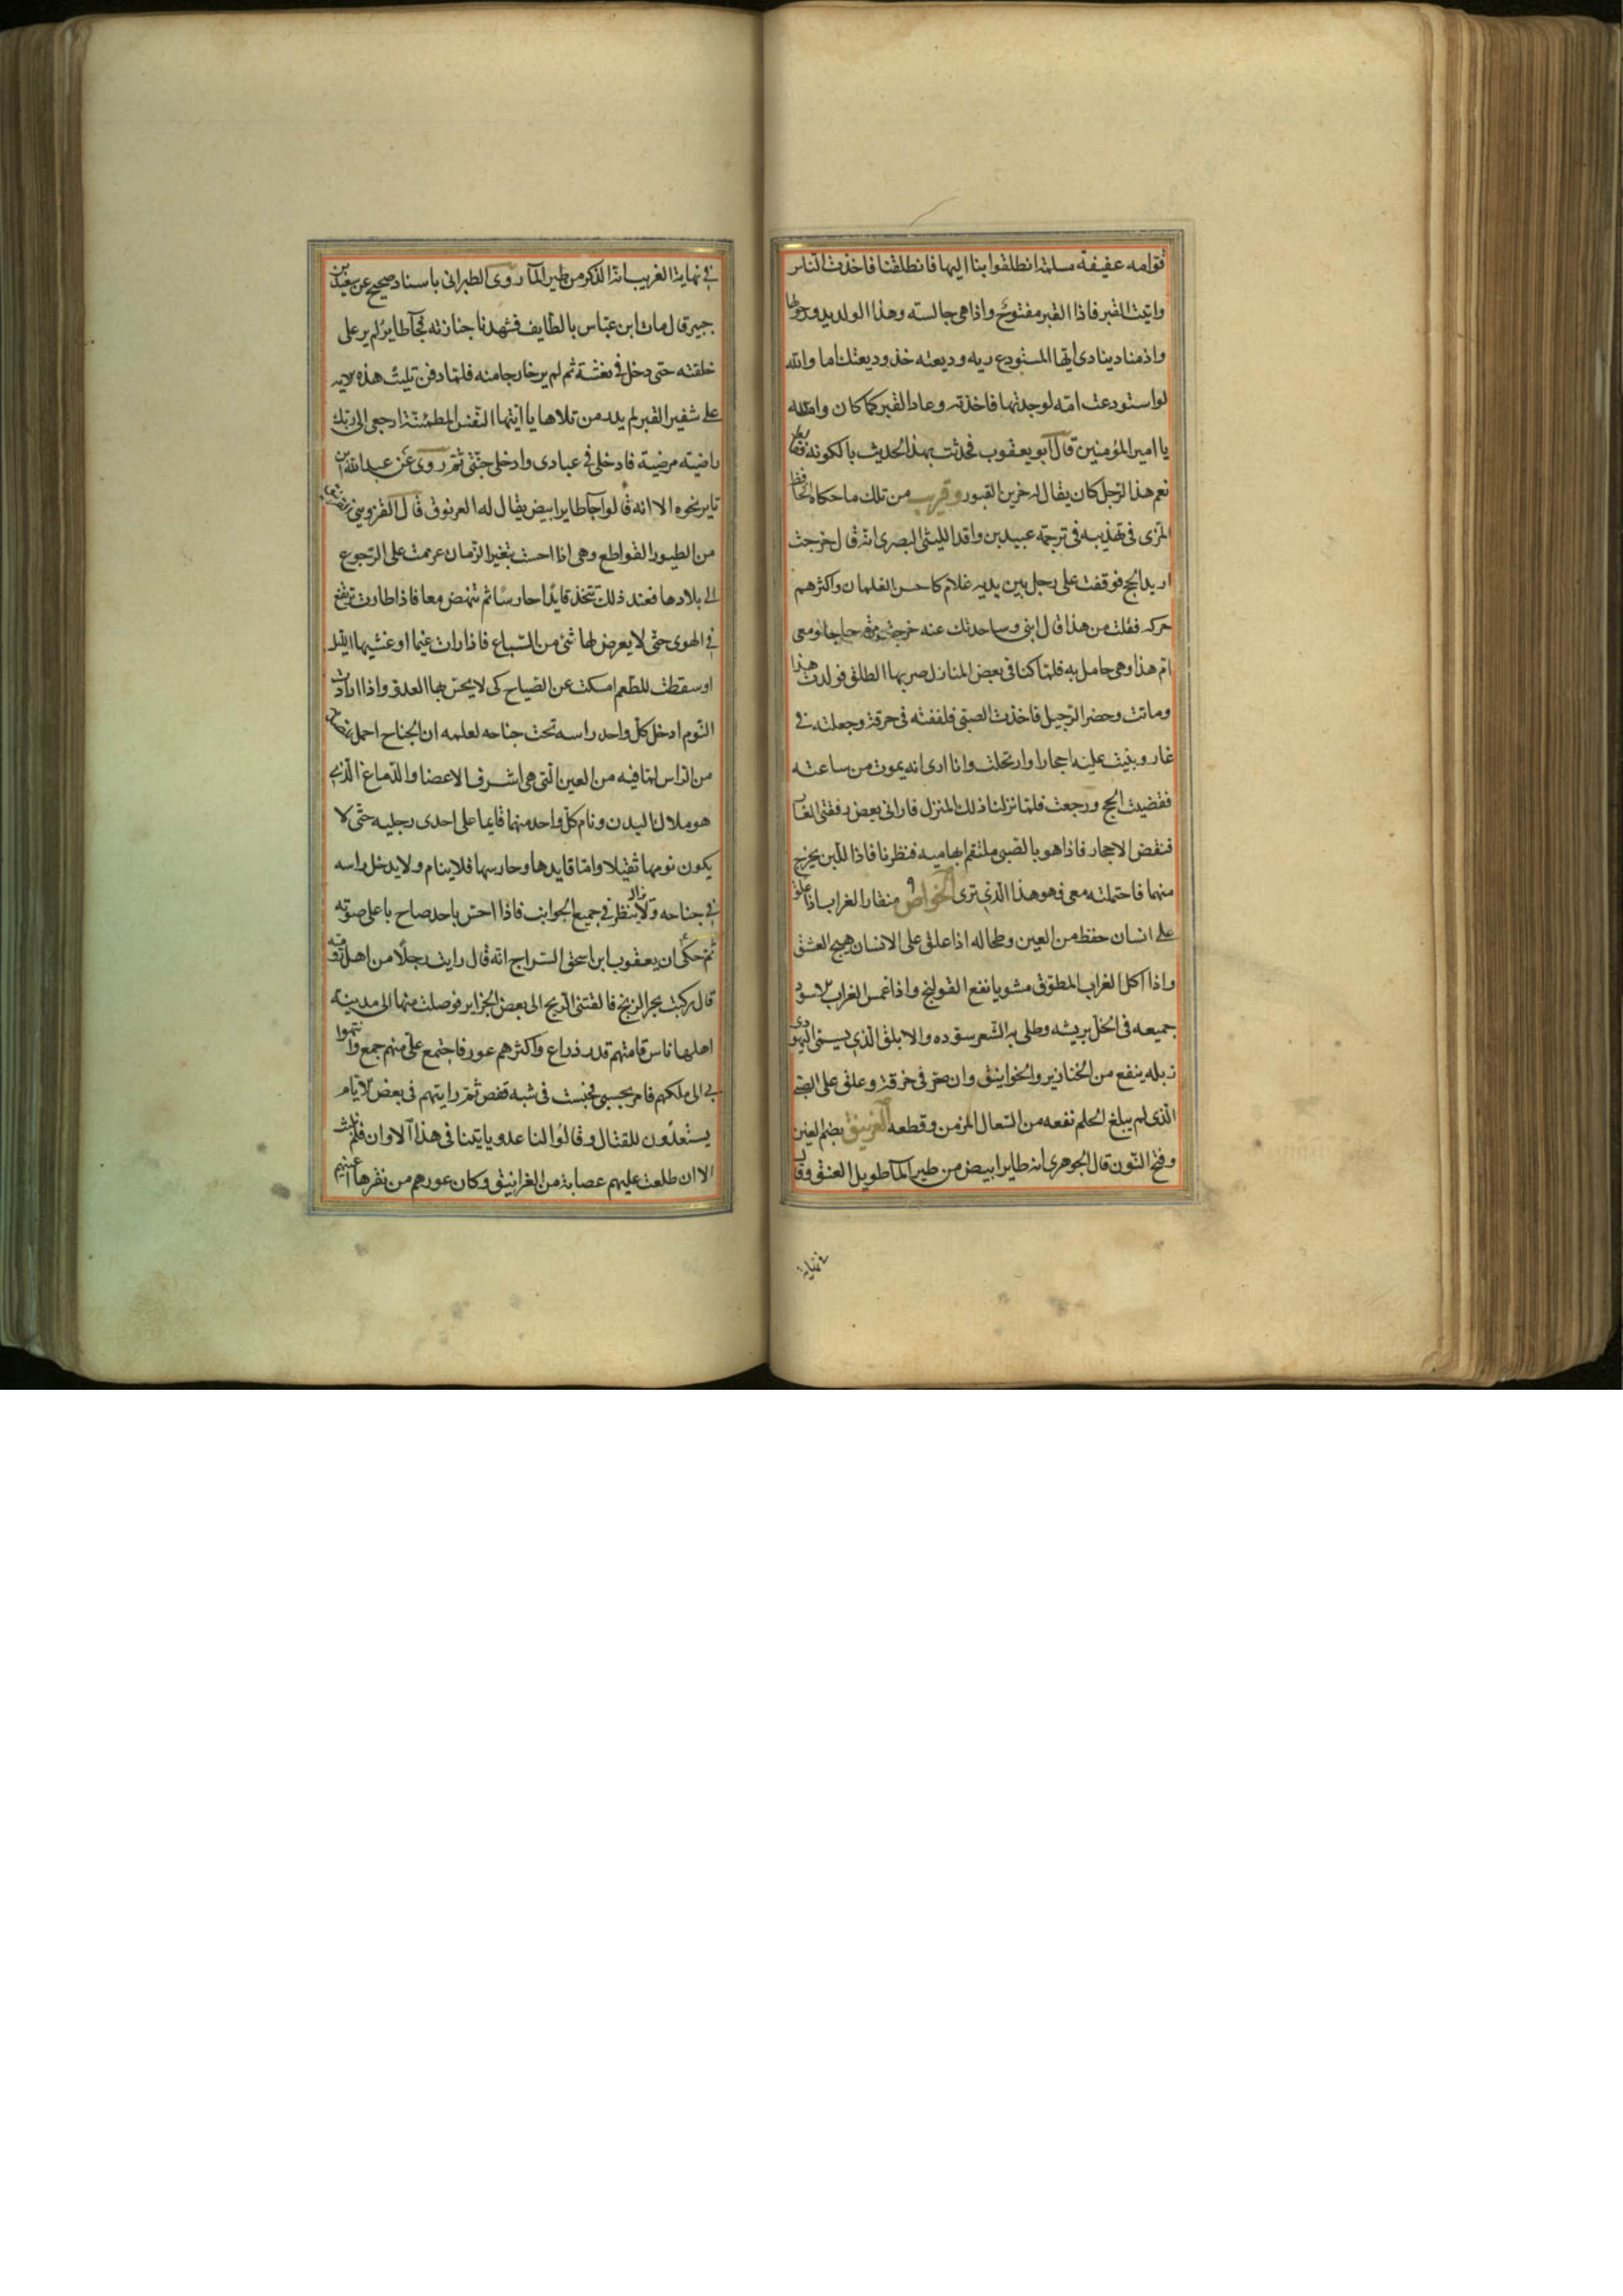 قوامه عفيفة مسلمة انطلقوا بنا اليها فانطلقنا فاخذت الناس
واتيت القبر فاذا القبر مفتوح واذا هي جالسته وهذا الولد يدور حولها
واذ مناد ينادي ايها المستودع ربه وديعته خذ وديعتك اما والله
لو استودعت امه لوجدتها فاخذته وعاد القبر كما كان والله
يا امير المؤمنين قال ابو يعقوب فحدثت بهذا الحديث بالكوفه فقالوا
نعم هذا الرجل كان يقال له خزين القبور وقريب من تلك ما حكاه الحافظ
المزى في تهذيبه في ترجمة عبيد بن واقد الليثى البصرى انه قال خرجت
اريد الحج فوقفت على رجل بين يديه غلام كاحسن الغلمان واكثرهم
حركه فقلت من هذا قال ابنى وساحدثك عنه خرجت مرة حاجا ومعى
ام هذا وهى حامل به فلما كنا في بعض المنازل ضربها الطلق فولدت هذا
وماتت وحضر الرحيل فاخذت الصبى فلففته في خرقة وجعلته في
غار وبنيت عليه احجارا وارتحلت وانا ارى انه يموت من ساعته
فقضيت الحج ورجعت فلما نزلنا ذلك المنزل فارانى بعض رفقتى الغار
فنقض الاحجار فاذا هو بالصبى ملتقم ابهاميه فنظرنا فاذا اللبن يخرج
منهما فاحتملته معى فهو هذا الذي ترى الخواص منقار الغراب اذا علق
على انسان حفظ من العين وطحاله اذا علق على الانسان هيج العشق
واذا اكل الغراب المطوق مشويا نفع القولنج واذا غمس الغراب الاسود
جميعه في الخل بريشه وطلى به الشعر سوده والابلق الذي يسمى اليهودى
زبله ينفع من الخنازير والخوانيق وان صر في خرقة وعلق على الصبى
الذى لم يبلغ الحلم نفعه من السعال المزمن وقطعه الغرنيق بضم الغين
وفتح النون قال الجوهرى انه طاير ابيض من طير المآ طويل العنق وقال
في نهاية
في نهاية الغريب انه الذكر من طير المآ روى الطبرانى باسناد صحيح عن سعيد بن
جبير قال مات ابن عباس بالطايف فشهدنا جنازته فجآ طاير لم ير على
خلقته حتى دخل في نعشه ثم لم ير خارجا منه فلما دفن تليت هذه الايه
على شفير القبر لم يدر من تلاها يا ايتها النفس المطمئنة ارجعى الى ربك
راضيته مرضية فادخلى في عبادى وادخلى جنتى ثم روى عن عبد الله ابن
ياير نحوه الا انه قالوا جآ طاير ابيض يقال له الغرنوق قال القزوينى
من الطيور القواطع وهى اذا احست بتغير الزمان عزمت على الرجوع
الى بلادها فعند ذلك تتخذ قايدا حارسا ثم تنهض معا فاذا طارت ترتفع
في الهوى حتى لا يعرض لها شئ من السباع فاذا رات غيما او غشيها الليل
او سقطت للطعم امسكت عن الصياح كى لا يحس بها العدو واذا ارادت
النوم ادخل كل واحد راسه تحت جناحه لعلمه ان الجناح احمل
من الراس لما فيه من العين التى هي اشرف الاعضا والدماغ الذى
هو ملاك البدن ونام كل واحد منهما قايما على احدى رجليه حتى لا
يكون نومها ثقيلا واما قايدها وحارسها فلا ينام ولا يدخل راسه
في جناحه ولا يزال ينظر في جميع الجوانب فاذا احس باحد صاح باعلى صوته
ثم حكى ان يعقوب ابن اسحق السراج انه قال رايت رجلا من اهل رومية
قال ركبت بحر الزنج فالقتنى الريح الى بعض الجزاير فوصلت منها الى مدينة
اهلها ناس قامتهم قدر ذراع واكثرهم عور فاجتمع على منهم جمع وانتهوا
بي الى ملكهم فامر بحبسى فحبست في شبه قفص ثم رايتهم في بعض الايام
يستعدون للقتال وقالوا لنا عدو ياتينا في هذا الاوان فلم نلبث
الا ان طلعت عليهم عصابة من الغرانيق وكان عورهم من نقرها اعينهم